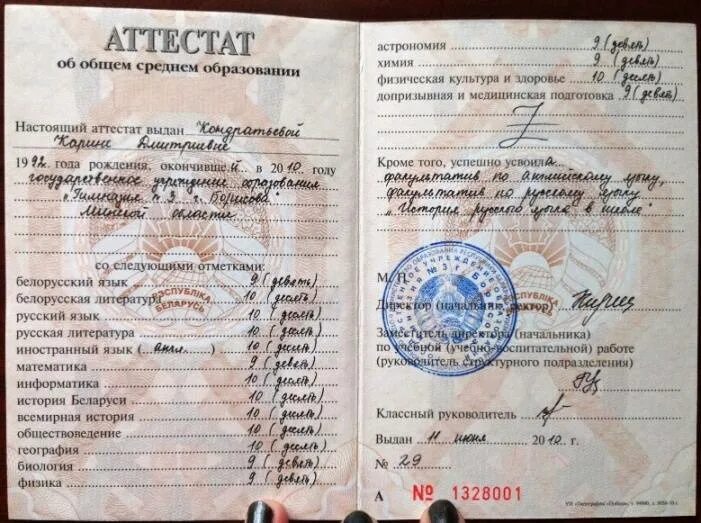 АТТЕСТАТ
об общем среднем образовании
Настоящий аттестат выдан Кондратьевой
Карине Дмитриевне
1992 года рождения, окончившей в 2010 году
государственное учреждение образования
"Гимназия №3 г. Борисова"
Минской области
со следующими отметками:
белорусский язык 9 (девять)
белорусская литература 10 (десять)
русский язык 10 (десять)
русская литература 10 (десять)
иностранный язык (англ.) 10 (десять)
математика 9 (девять)
информатика 10 (десять)
история Беларуси 10 (десять)
всемирная история 10 (десять)
обществоведение 10 (десять)
география 10 (десять)
биология 9 (девять)
физика 9 (девять)
РЕСПУБЛИКА
БЕЛАРУСЬ
астрономия 9 (девять)
химия 9 (девять)
физическая культура и здоровье 10 (десять)
допризывная и медицинская подготовка 9 (девять)
Кроме того, успешно усвоила
факультатив по английскому языку,
факультатив по русскому языку
"История русского языка в школе"
М. П.
Директор (начальник, ректор)
Заместитель директора (начальника)
по учебной (учебно-воспитательной) работе
(руководитель структурного подразделения)
Классный руководитель
Выдан 11 июня 2010 г.
№ 29
А № 1328001